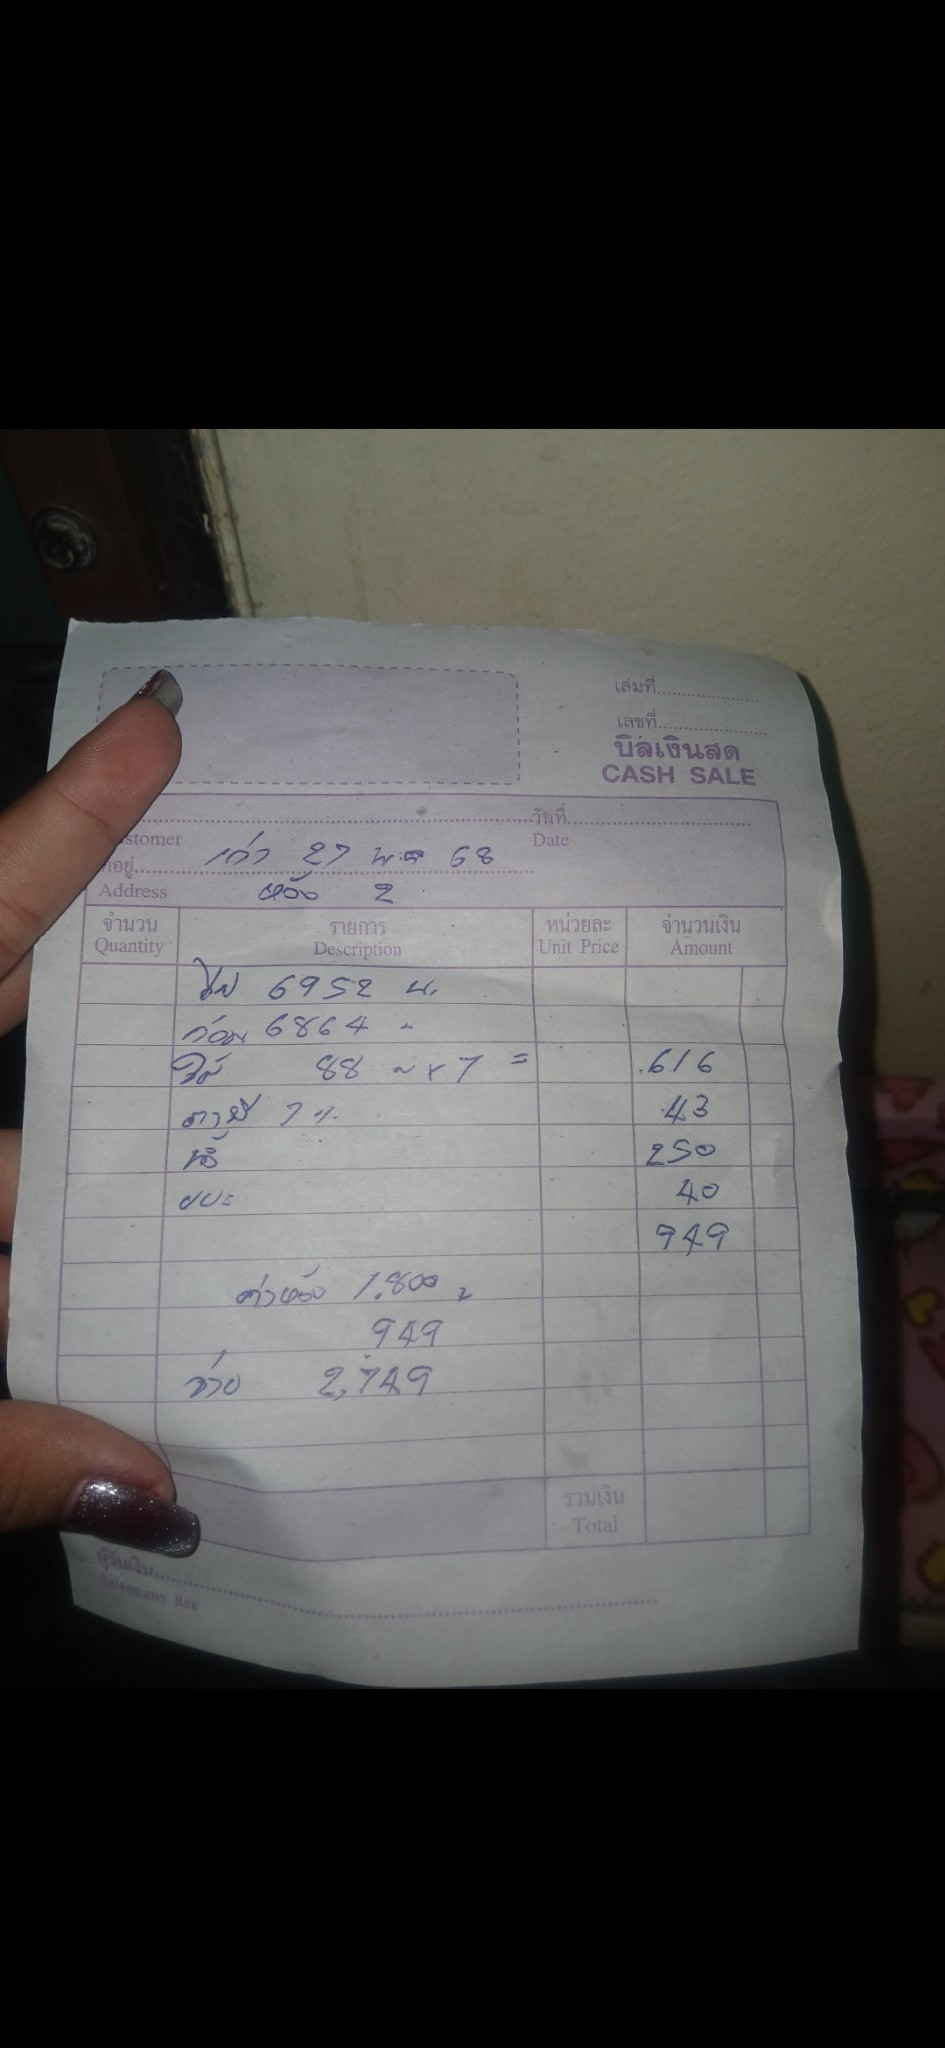 เล่มที่
เลขที่
บิลเงินสด
CASH SALE
วันที่
stomer
Date
27 68
Address ห้อง 2
จำนวน รายการ หน่วยละ จำนวนเงิน
Quantity Description Unit Price Amount
ไฟ 6952 น.
ก่อน 6864 "
ใช้ 88 " x 7 = 616
ภาษี 7 % 43
น้ำ 250
ขยะ 40
949
ค่าห้อง 1,800
949
จ่าย 2,749
รวมเงิน
Total
ผู้รับเงิน
Salesmans Rec